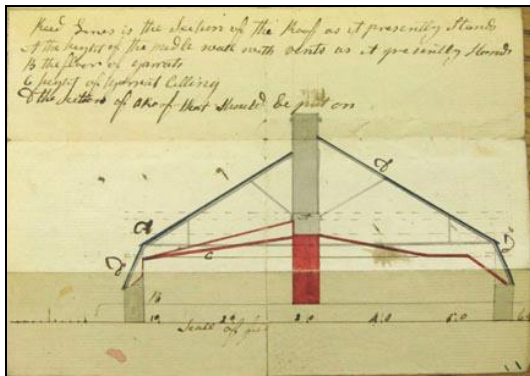 Reed Lines is the Section of the Roof as it presently Stands
A the height of the midle wall with vents as it presently Stands
B the floor of garrets
C height of garrat Cilling
D the Section of a Roof that Should be put on
D
D
C
B
10 20 30 40 50 60
Scall of feet